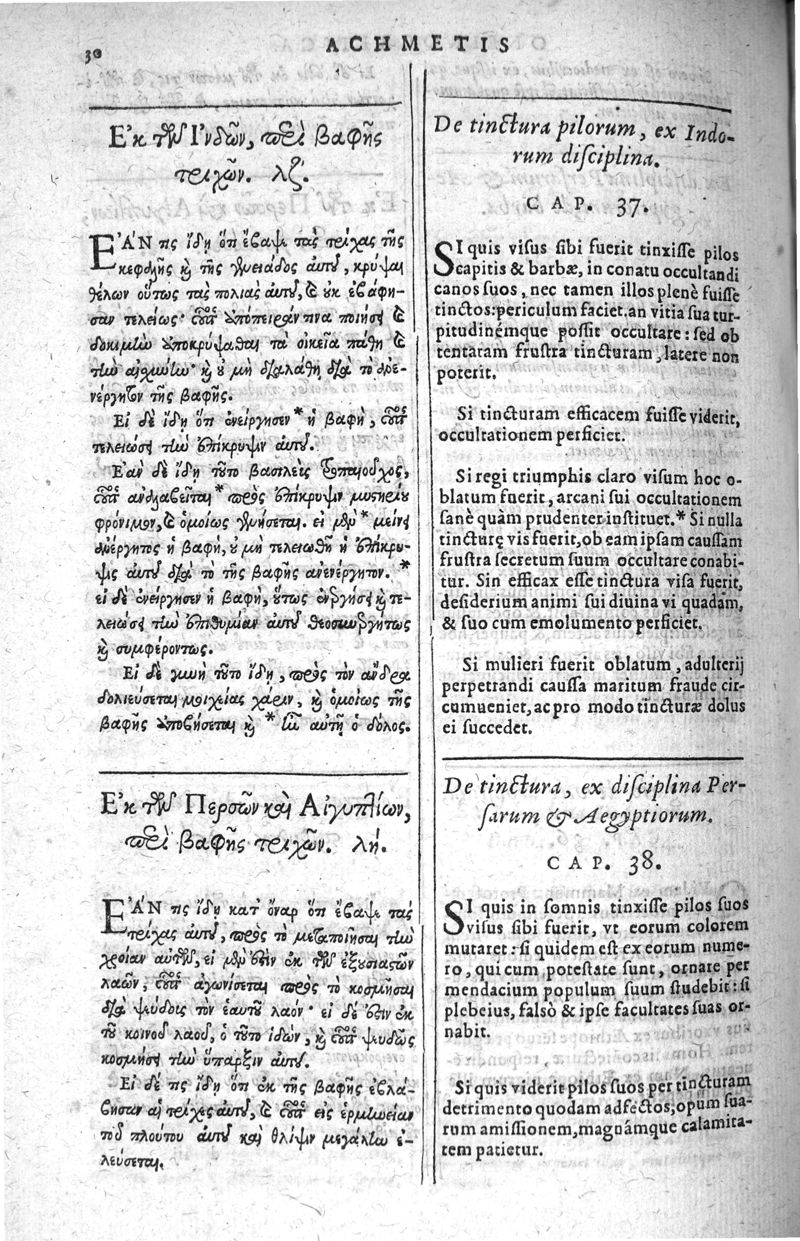 30
ACHMETIS
Ἐκ τῶν Ἰνδῶν, περὶ βαφῆς
τριχῶν. λζ.
ΕΑΝ τις ἴδῃ ὅτι ἔβαψε τὰς τρίχας τῆς
κεφαλῆς καὶ τῆς γενειάδος αὐτοῦ, κρύψαι
θέλων οὕτως τὰς πολιὰς αὐτοῦ, καὶ οὐκ ἐβάφη-
σαν τελείως· οὗτος ὑπόπειράν τινα ποιήσει καὶ
δοκιμὴν ὑποκρύψασθαι τὰ οἰκεῖα πάθη καὶ
τὴν αἰσχύνην· καὶ οὐ μὴ διαλάθῃ διὰ τὸ ἀνε-
νέργητον τῆς βαφῆς.
Εἰ δὲ ἴδῃ ὅτι ἐνείργησεν * ἡ βαφὴ, οὗτος
τελειώσει τὴν ἐπίκρυψιν αὐτοῦ.
Ἐὰν δὲ ἴδῃ τοῦτο βασιλεὺς τροπαιοῦχος,
οὗτος ἀναλαβεῖται * πρὸς ἐπίκρυψιν μυστηρίου
φρόνιμον, καὶ ὁμοίως γενήσεται. εἰ μὲν * μείνῃ
ἀνέργητος ἡ βαφὴ, οὐ μὴ τελειωθῇ ἡ ἐπίκρυ-
ψις αὐτοῦ διὰ τὸ τῆς βαφῆς ἀνενέργητον. *
εἰ δὲ ἐνείργησεν ἡ βαφὴ, οὕτως ἐνεργήσει καὶ τε-
λειώσει τὴν ἐπιθυμίαν αὐτοῦ θεοσυνεργήτως
καὶ συμφερόντως.
Εἰ δὲ γυνὴ τοῦτο ἴδῃ, πρὸς τὸν ἄνδρα
δολιεύσεται μοιχείας χάριν, καὶ ὁμοίως τῆς
βαφῆς ἀποβήσεται καὶ * ἐπ' αὐτῇ ὁ δόλος.
Ἐκ τῶν Περσῶν καὶ Αἰγυπτίων,
περὶ βαφῆς τριχῶν. λή.
ΕΑΝ τις ἴδῃ κατ' ὄναρ ὅτι ἔβαψε τὰς
τρίχας αὐτοῦ, πρὸς τὸ μεταποιῆσαι τὴν
χροίαν αὐτῶν, εἰ μὲν ἐστιν ἐκ τῶν ἐξουσιαστῶν
λαῶν, οὗτος ἀγωνίσεται πρὸς τὸ κοσμῆσαι
διὰ ψεύδους τὸν ἑαυτοῦ λαόν· εἰ δὲ ἐστιν ἐκ
τοῦ κοινοῦ λαοῦ, ὁ τοῦτο ἰδὼν, καὶ οὗτος ψευδῶς
κοσμήσει τὴν ὕπαρξιν αὐτοῦ.
Εἰ δέ τις ἴδῃ ὅτι ἐκ τῆς βαφῆς ἐβλά-
βησαν αἱ τρίχες αὐτοῦ, καὶ οὗτος εἰς ἐρήμωσιν
τοῦ πλούτου αὐτοῦ καὶ θλίψιν μεγάλην ἐ-
λεύσεται.
De tinctura pilorum, ex Indo-
rum disciplina.
CAP. 37.
SI quis visus sibi fuerit tinxisse pilos
capitis & barbæ, in conatu occultandi
canos suos, nec tamen illos plenè fuisse
tinctos: periculum faciet. an vitia sua tur-
pitudinémque possit occultare: sed ob
tentatam frustra tincturam, latere non
poterit.
Si tincturam efficacem fuisse viderit,
occultationem perficiet.
Si regi triumphis claro visum hoc o-
blatum fuerit, arcani sui occultationem
sanè quàm prudenter instituet.* Si nulla
tincturę vis fuerit, ob eam ipsam caussam
frustra secretum suum occultare conabi-
tur. Sin efficax esse tinctura visa fuerit,
desiderium animi sui diuina vi quadam,
& suo cum emolumento perficiet.
Si mulieri fuerit oblatum, adulterij
perpetrandi caussa maritum fraude cir-
cumueniet, ac pro modo tincturæ dolus
ei succedet.
De tinctura, ex disciplina Per-
sarum & Aegyptiorum.
CAP. 38.
SI quis in somnis tinxisse pilos suos
visus sibi fuerit, vt eorum colorem
mutaret: si quidem est ex eorum nume-
ro, qui cum potestate sunt, ornare per
mendacium populum suum studebit: si
plebeius, falsò & ipse facultates suas or-
nabit.
Si quis viderit pilos suos per tincturam
detrimento quodam adfectos, opum sua-
rum amissionem, magnámque calamita-
tem patietur.